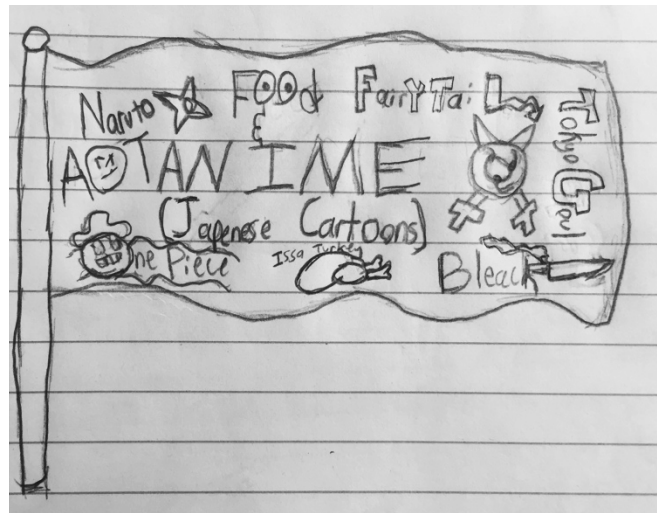 Naruto FOOd FairYTaiL
Tokyo Goul
&
AOT ANIME
(Japenese Cartoons)
One Piece
Issa Turkey
Bleach